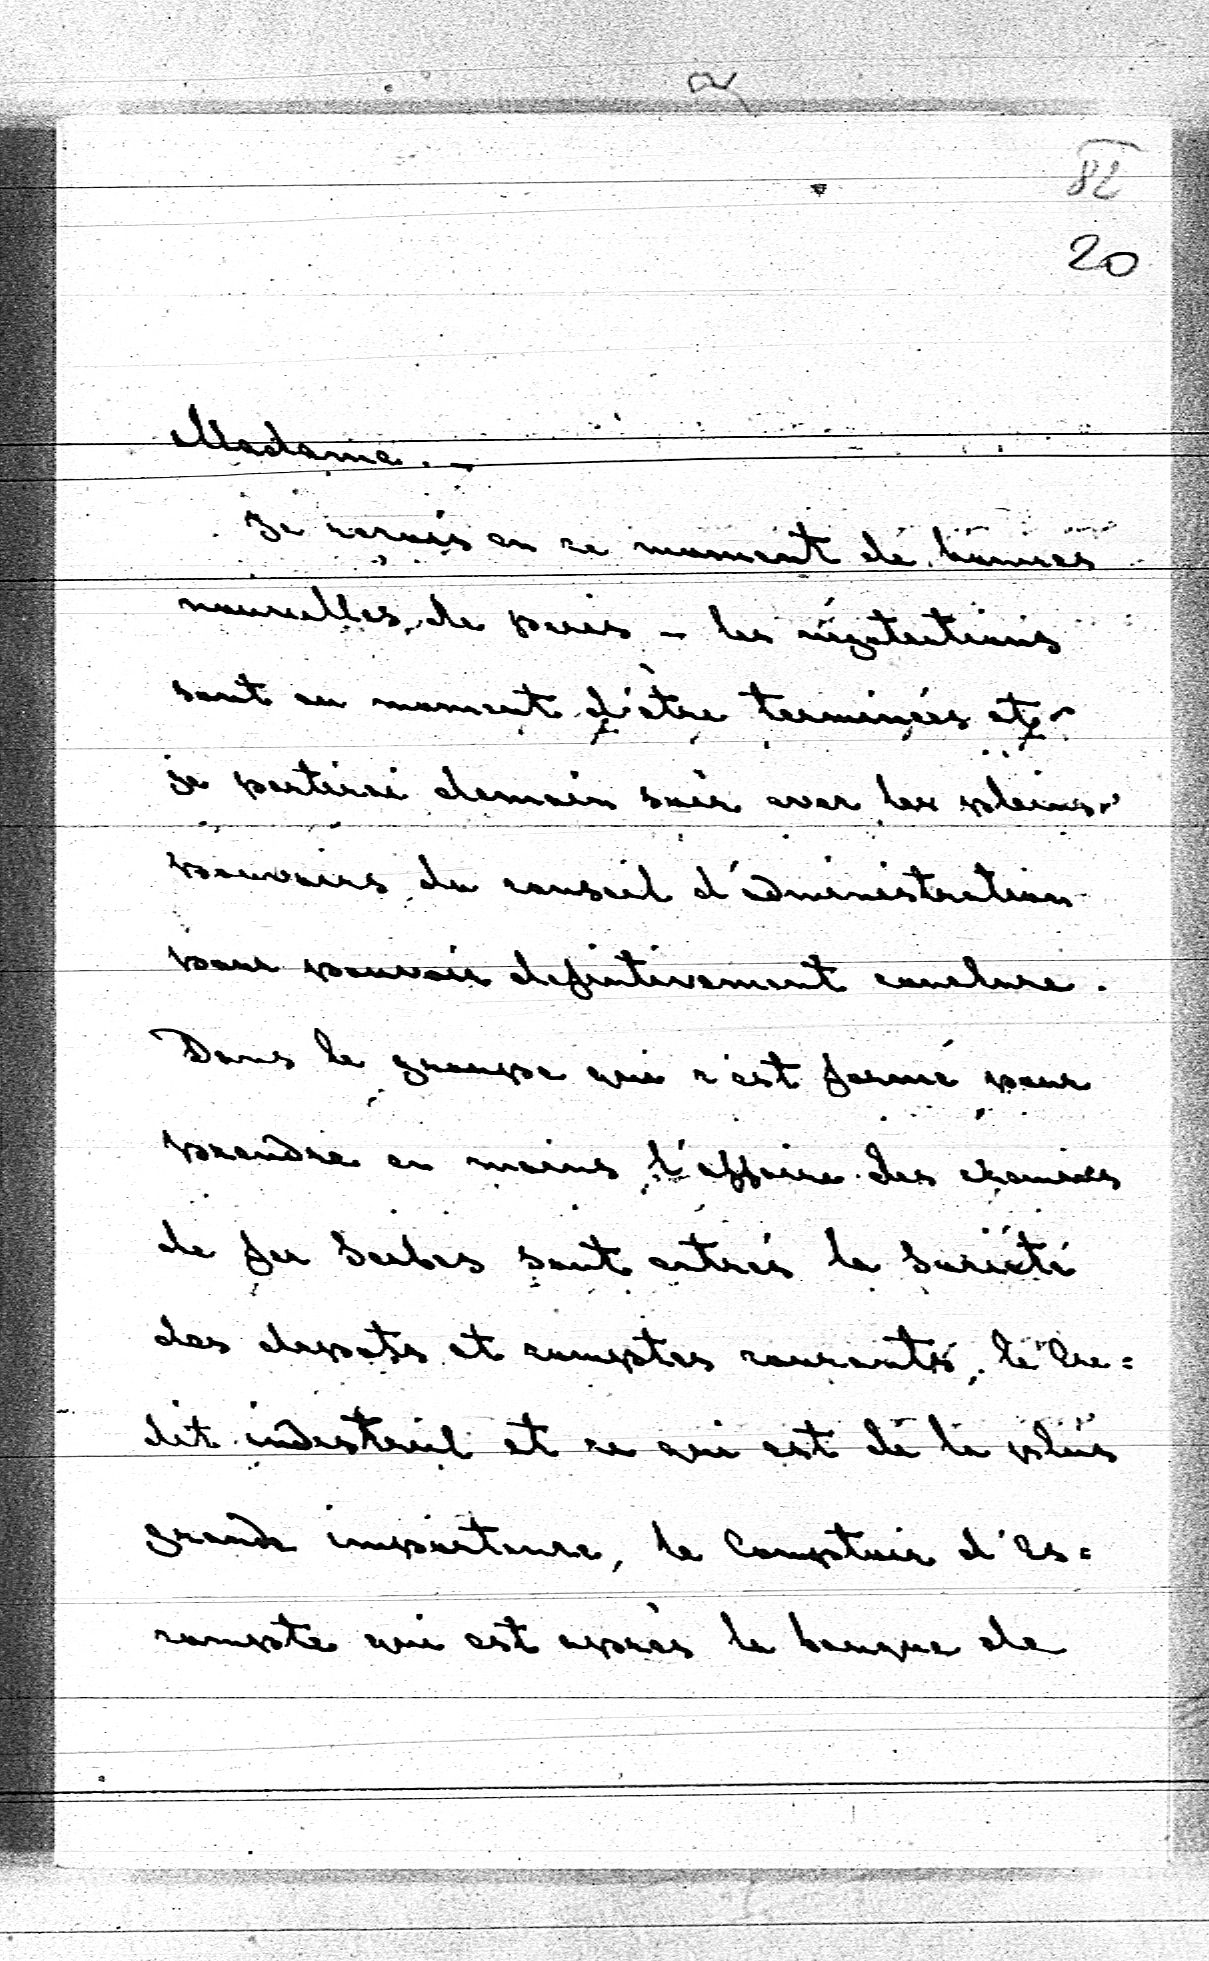 82
20
Madame. –
Je reçois en ce moment de bonnes
nouvelles de paris – les négotiations
sont au moment d'être terminées et
je partirai demain soir avec les pleins
pouvoirs du conseil d'administration
pour pouvoir definitivement conclure.
Dans le groupe qui c'est formé pour
prendre en mains l'affaire des chemins
de fer Serbes sont entrés la Société
des depots et comptes courants, le Cre=
dit industriel et ce qui est de la plus
grande importance, le Comptoir d'Es=
compte qui est après la banque de